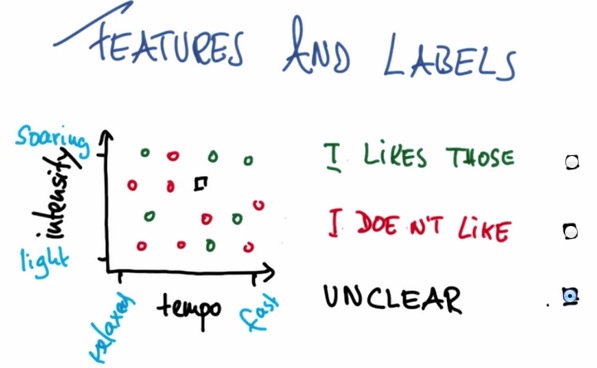 FEATURES AND LABELS
Soaring
intensity
light
relaxed
tempo
fast
I LIKES THOSE
I DOEN'T LIKE
UNCLEAR